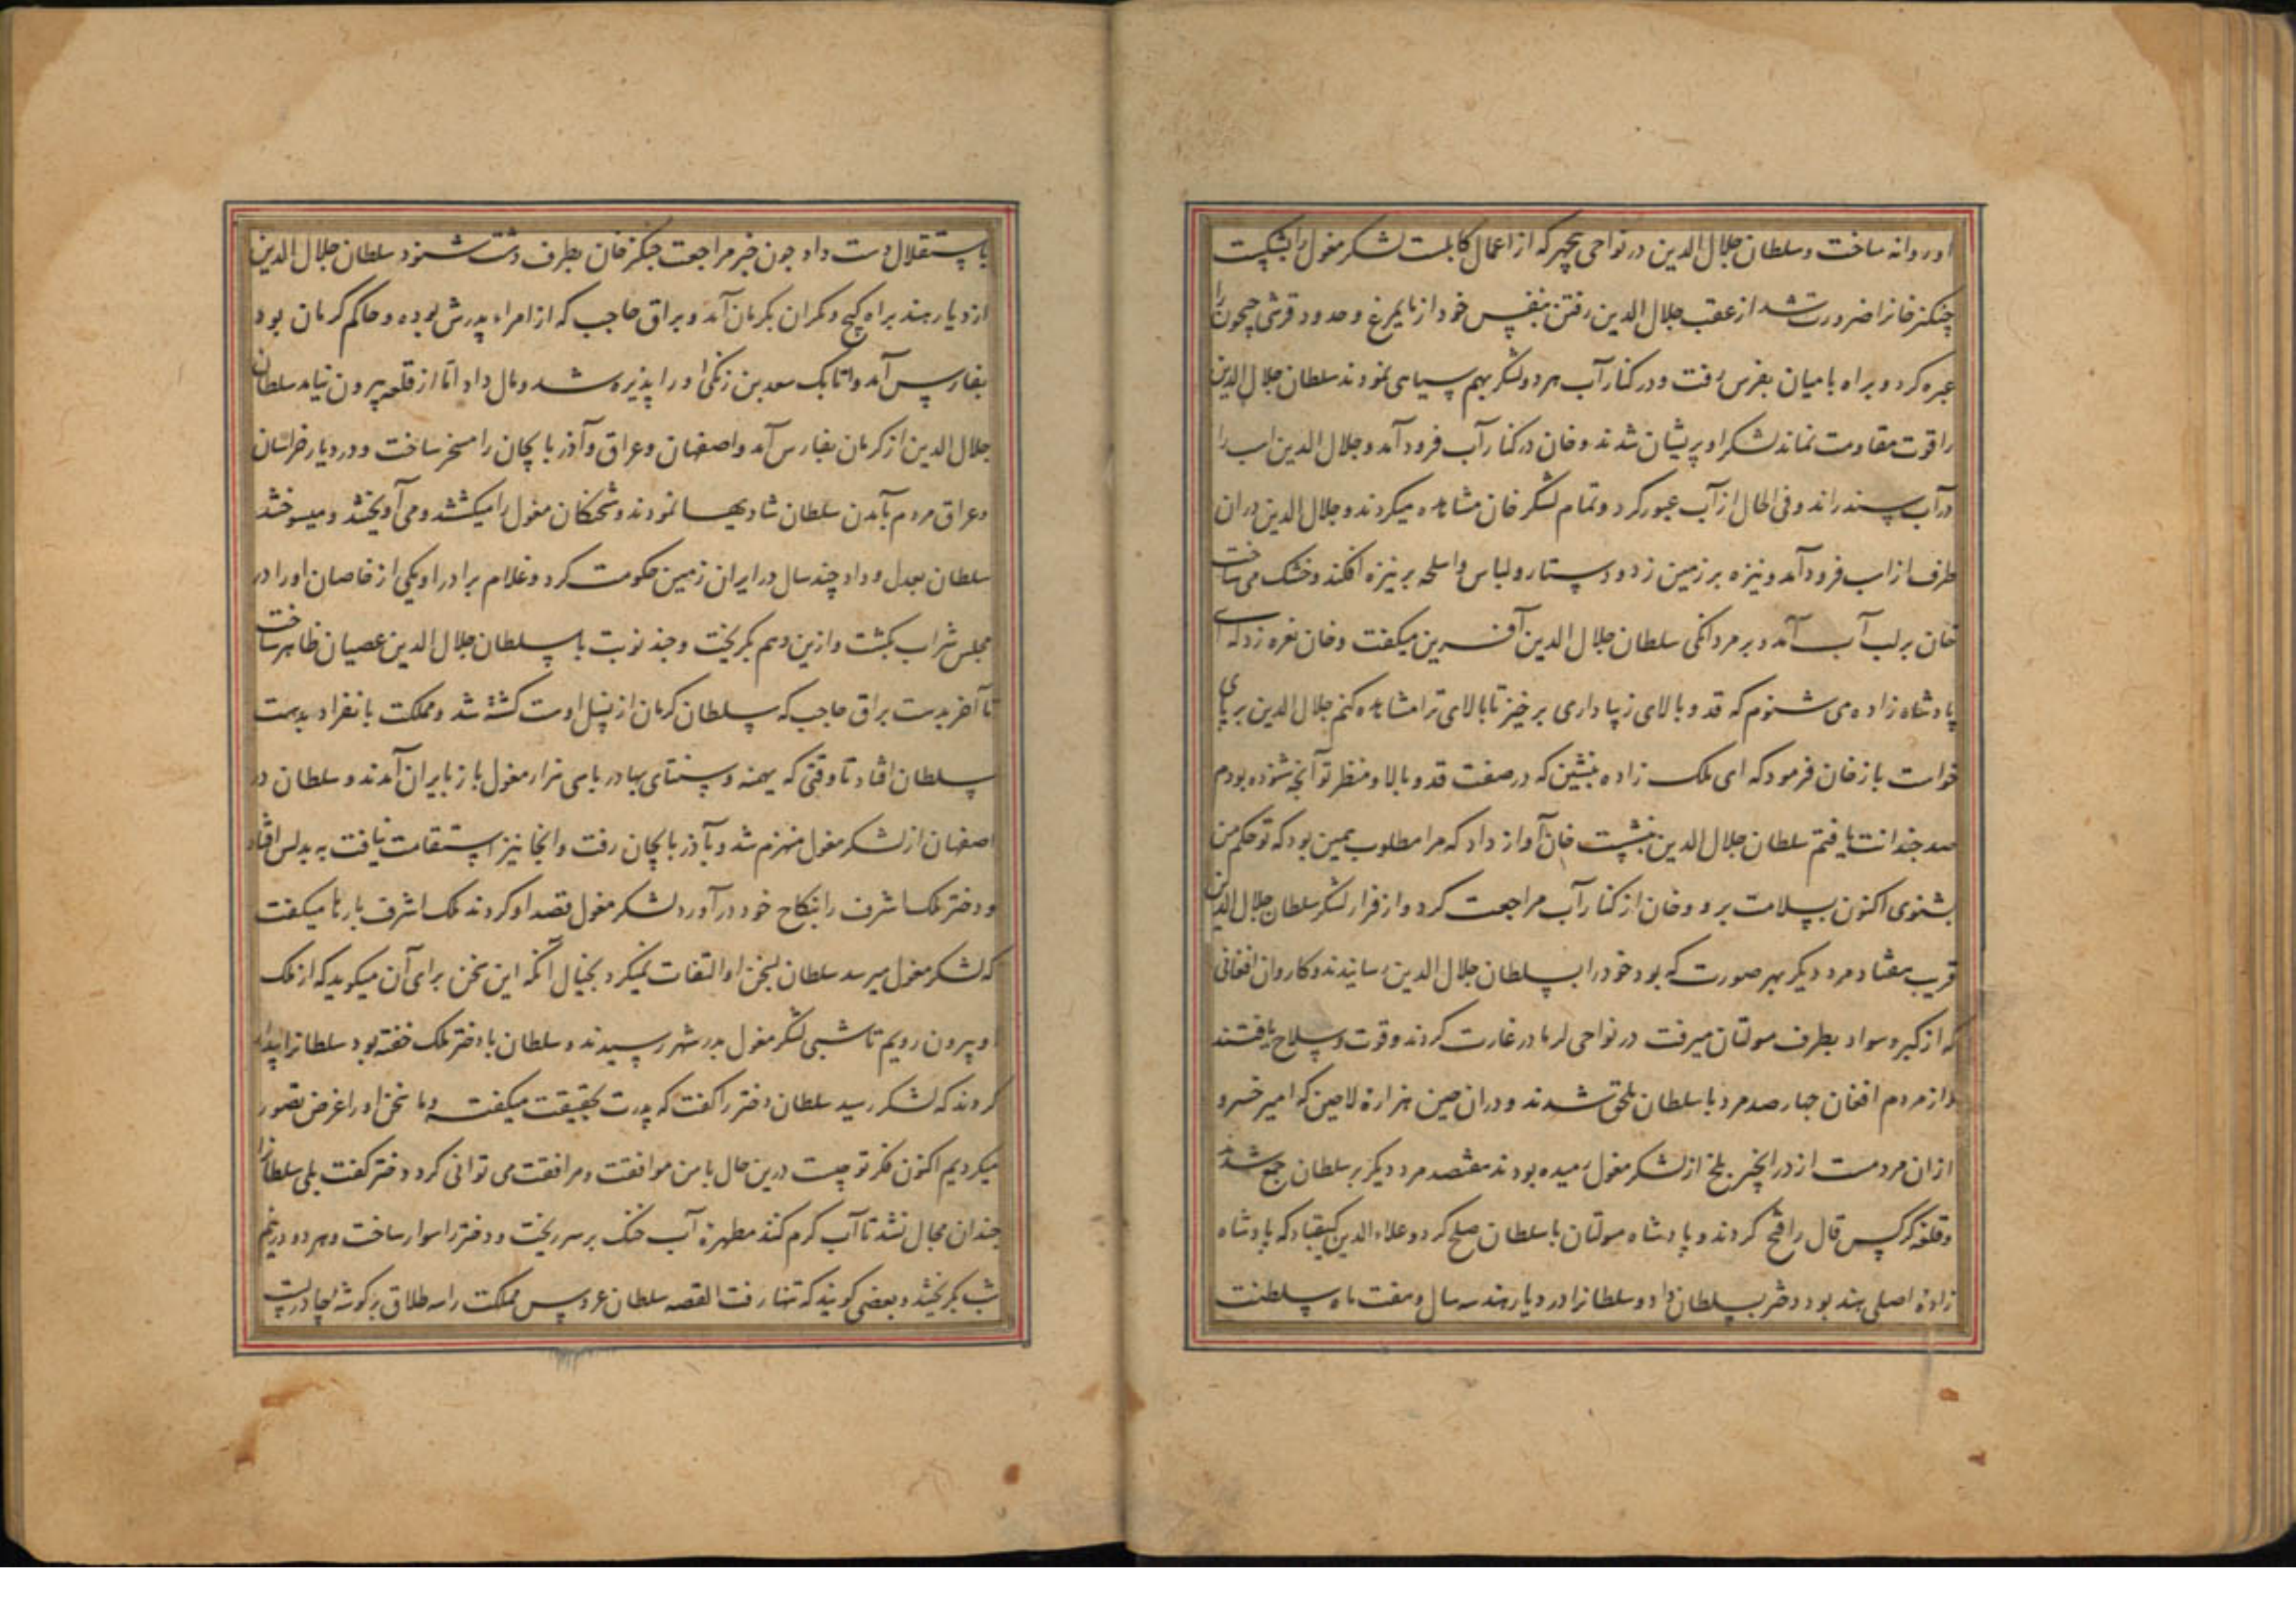 اوروانه ساخت و سلطان جلال الدین در نواحی که از اعمال کابلست لشکر مغول را بشکست
چنکیز خانرا ضرورت شد از عقب جلال الدین رفتن بنفس خود از نایمرغ و حدود قرشی جیحون را
عبره کرد و براه بامیان بغزنین رفت و در کنار آب هر دو لشکر بهم سیاهی نمودند سلطان جلال الدین
را قوت مقاومت نماند لشکر او پریشان شدند و خان در کنار آب فرود آمد و جلال الدین اسب را
در آب سند راند و فی الحال از آب عبور کرد و تمام لشکر خان مشاهده میکردند و جلال الدین دران
طرف از اسب فرود آمد و نیزه بر زمین زد و دستار و لباس و اسلحه بر نیزه افکند و خشک می ساخت
خان بر لب آب آمد و بر مردانگی سلطان جلال الدین آفرین میکفت و خان نعره زد که ای
پادشاه زاده می شنوم که قد و بالای زیبا داری برخیز تا بالای ترا مشاهده کنم جلال الدین بر پای
خواست باز خان فرمود که ای ملک زاده بنشین که در صفت قد و بالا و منظر تو آنچه شنوده بودم
صد چندانت یافتم سلطان جلال الدین بنشست خان آواز داد که مرا مطلوب همین بود که تو حکم من
بشنوی اکنون بسلامت برو و خان از کنار آب مراجعت کرد و از فرار لشکر سلطان جلال الدین
قریب هفتاد مرد دیکر بهر صورت که بود خود را بسلطان جلال الدین رسانیدند و کاروان افغانی
که از کبر و سواد بطرف مولتان میرفت در نواحی لرهاور غارت کردند و قوت و سلاح یافتند
و از مردم افغان چهار صد مرد با سلطان ملحق شدند و دران حین هزاره لاچین که امیر خسرو
ازان مردمست از در بلخ از لشکر مغول رمیده بودند هفتصد مرد دیکر بر سلطان جمع شدند
و قلعه قال را فتح کردند و پادشاه مولتان با سلطان صلح کرد و علاء الدین کیقباد که پادشاه
زاده اصلی هند بود دختر بسلطان داد و سلطانرا در دیار هند سه سال و هفت ماه سلطنت
باستقلال دست داد چون خبر مراجعت چنکیز خان بطرف دشت شنود سلطان جلال الدین
از دیار هند براه کیج و مکران بکرمان آمد و براق حاجب که از امراء پدرش بوده و حاکم کرمان بود
آمد و اتابک سعد بن زنکی او را پذیره شد و مال داد اما از قلعه بیرون نیامد سلطان
جلال الدین از کرمان بفارس آمد و اصفهان و عراق و آذربایجان را مسخر ساخت و در دیار خراسان
و عراق مردم بآمدن سلطان شادیها نمودند و شحنکان مغول را میکشتند و می آویختند و میسوختند
سلطان بعدل و داد چند سال در ایران زمین حکومت کرد و غلام برادر او یکی از خاصان او را در
مجلس شراب بکشت و ازین وهم بکریخت و چند نوبت با سلطان جلال الدین عصیان ظاهر ساخت
تا آخر بدست براق حاجب که سلطان کرمان از نسل اوست کشته شد و مملکت بانفراد بدست
سلطان افتاد تا وقتی که یمنه و سنتای بهادر با سی هزار مغول باز بایران آمدند و سلطان در
اصفهان از لشکر مغول منهزم شد و بآذربایجان رفت و آنجا نیز استقامت نیافت به بدلس افتاد
و دختر ملک اشرف را بنکاح خود درآورد لشکر مغول قصد او کردند ملک اشرف بارها میکفت
که لشکر مغول میرسد سلطان بسخن او التفات نمیکرد بخیال آنکه این سخن برای آن میکوید که از ملک
او بیرون رویم تا شبی لشکر مغول بدر شهر رسیدند و سلطان با دختر ملک خفته بود سلطانرا بیدار
کردند که لشکر رسید سلطان دختر را کفت که پدرت بحقیقت میکفته و ما سخن او را غرض تصور
میکردیم اکنون فکر تو چیست درین حال با من موافقت و مرافقت می توانی کرد دختر کفت بلی سلطانرا
چندان مجال نشد تا آب کرم کند مطهره آب خنک بر سر ریخت و دختر را سوار ساخت و هر دو در نیم
شب بکریختند و بعضی کویند که تنها رفت القصه سلطان عروس مملکت را سه طلاق بر کوشه چادر بست